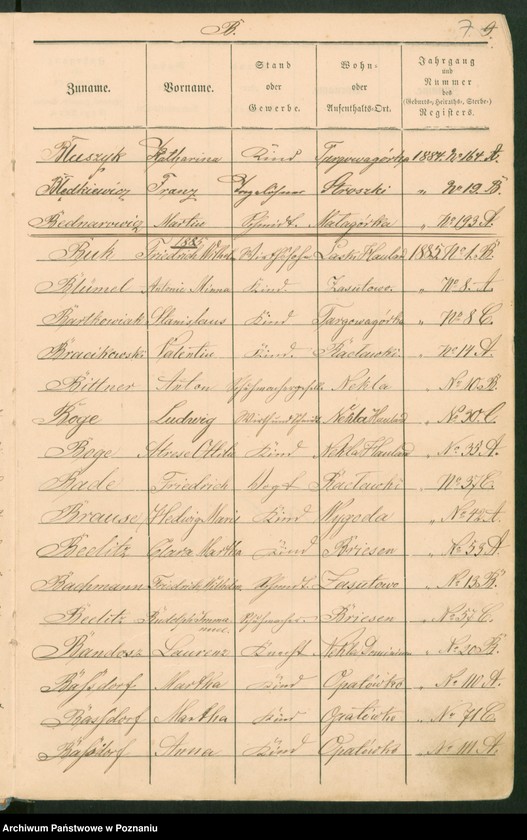 B.
7 9.
Zuname. Vorname. Stand oder Gewerbe. Wohn- oder Aufenthalts-Ort. Jahrgang und Nummer des (Geburts-, Heiraths-, Sterbe-) Registers.
Bluszyk Katharina Kind Targowagórka 1884 No 164 A.
Błędkiewicz Franz Tagelöhner Stroszki " No 12. B.
Bednarowicz Martin Schmidt. Małagórka " No 193 A.
1885
Buk Friedrich Wilhelm Wirthssohn Hauland 1885 No 1. B.
Blümel Antonie Minna Kind. Zasutowo " No 8. A.
Bartkowiak Stanislaus Kind Targowagórka " No 8 C.
Bracikowski Valentin Kind. Racławki " No 14 A.
Bittner Anton Schuhmachergeselle Nekla " No 10. B.
Boge Ludwig Wirth und Nekla Hauland " No 30 C.
Boge Kind Nekla Hauland " No 35. A.
Bade Friedrich Vogt Racławki " No 37 C.
Brause Hedwig Marie Kind Wygoda " No 48 A.
Beelitz Clara Martha Kind Briesen " No 55 A.
Bachmann Friedrich Wilhelm Schmidt. Zasutowo " No 13 B.
Beelitz Briesen " No 57 C.
Bandosz Laurenz Knecht Nekla Dominium " No 20 B.
Baßdorf Martha Kind Opatówko " No 110 A.
Bassdorf Martha Kind Opatówko " No 71 C.
Baßdorf Anna Kind Opatówko " No 111 A.
Archiwum Państwowe w Poznaniu